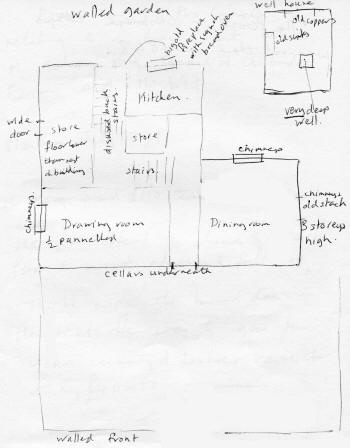 walled garden
well house
old coppers
old sinks
very deep
well.
big old
fireplace
with sign of
bread oven
Kitchen.
disused back
stairs
wide
door
store
floor lower
than rest
of building
store
stairs
chimneys
chimneys
chimneys
old stack
3 storeys
high.
Drawing room
½ pannelled
Dining room
cellars underneath
walled front